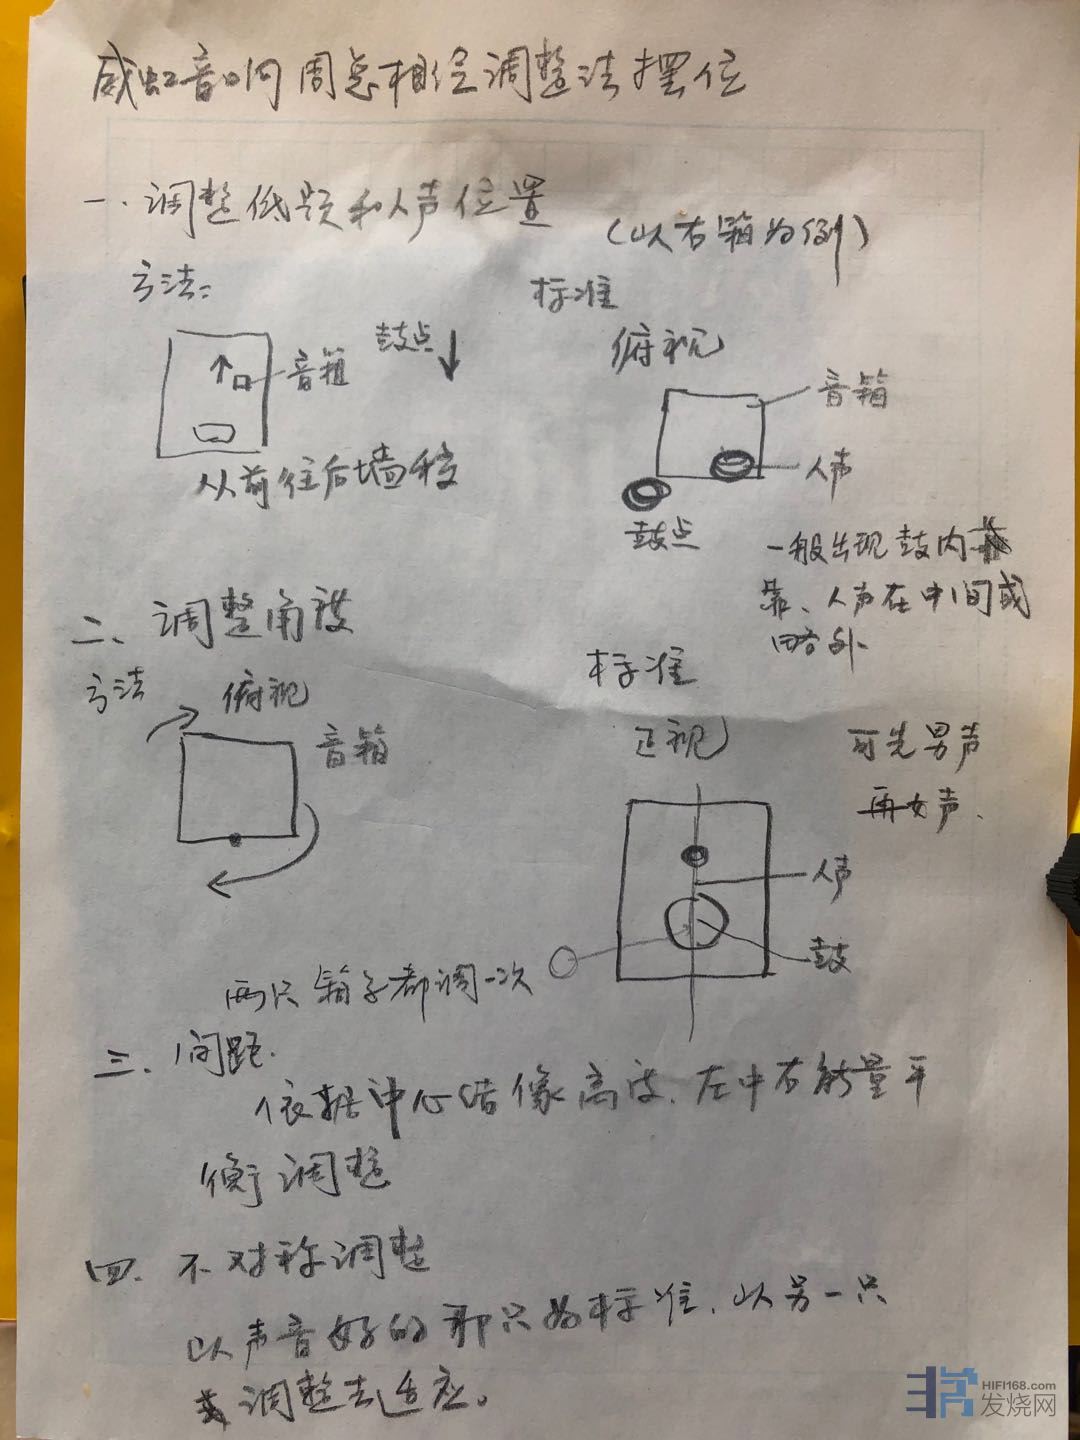 威虹音响周总相位调整法摆位
一.调整低频和人声位置
(以右箱为例)
方法:
标准
鼓点
俯视
音箱
音箱
从前往后墙移
人声
鼓点
一般出现鼓内
靠、人声在中间或
略外
二、调整角度
标准
方法
俯视
音箱
正视
可先男声
再女声.
人声
鼓
两只箱子都调一次
三.间距.
依据中心结像高度.左中右能量平
衡调整
四.不对称调整
以声音好的那只为标准.以另一只
调整去适应。
HIFI168.com
发烧网